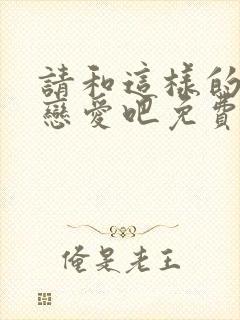 請和這樣的
戀愛吧免費
俺是老王